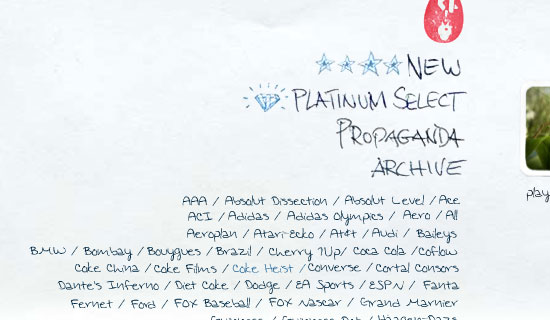 NEW
PLATINUM SELECT
PROPAGANDA
ARCHIVE
AAA / Absolut Dissection / Absolut Level / Ace
ACI / Adidas / Adidas Olympics / Aero / All
Aeroplan / Atari-Ecko / At&t / Audi / Baileys
BMW / Bombay / Bouygues / Brazil / Cherry 7Up / Coca Cola / Coflow
Coke China / Coke Films / Coke Heist / Converse / Cortal Consors
Dante's Inferno / Diet Coke / Dodge / EA Sports / ESPN / Fanta
Fernet / Ford / FOX Baseball / FOX Nascar / Grand Marnier
play